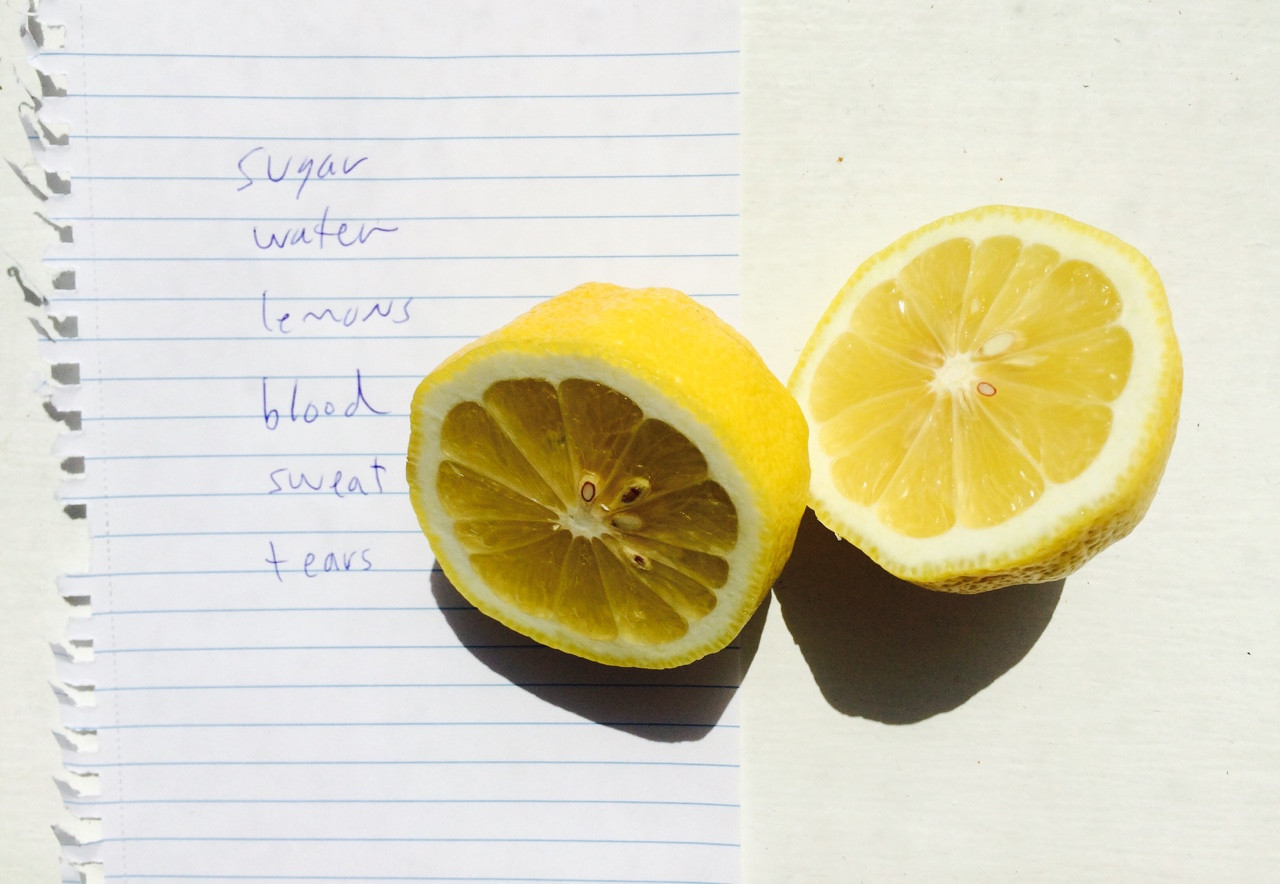 sugar
water
lemons
blood
sweat
tears